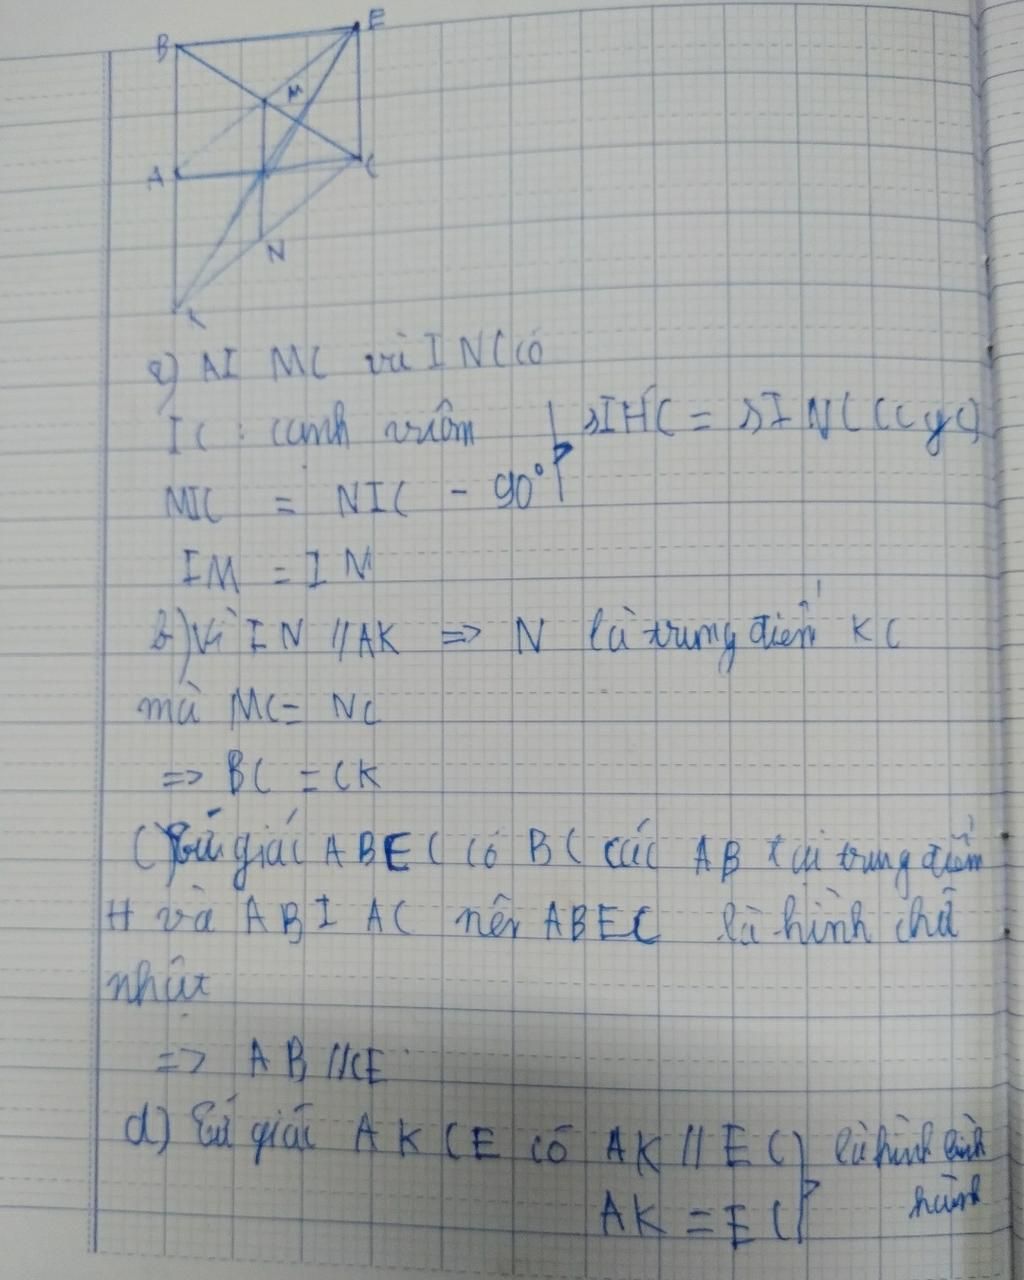 B
E
M
A
C
N
K
a) ΔI MC và I NC có
IC : cạnh
ΔIMC = ΔI NC (c g c)
MIC = NIC = 90°
IM = I N
b) Vì IN // AK => N là trung điểm KC
mà MC = NC
=> BC = CK
c) Tứ giác ABEC có BC các AB tại trung điểm
H và AB I AC nên ABEC là hình chữ
nhật
=> AB // CE
d) Tứ giác AKCE có AK // EC là hình bình
AK = EC hành